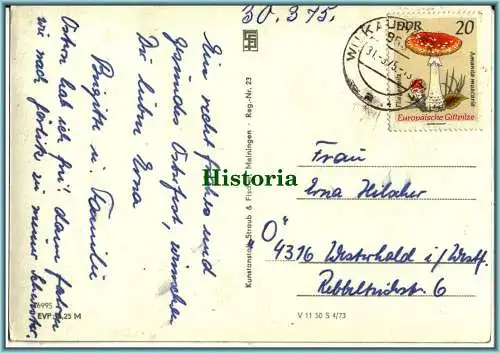 30.3.75.
Ein recht frohes und
gesundes Osterfest, wünschen
Dir liebe Erna
Brigitte u. Familie
Ostern hab ich frei dann fahren
wir nach Görlitz zu meiner Schwester.
6995
EVP 0,25 M
Kunstanstalt Straub & Fischer Meiningen · Reg.-Nr. 23
Historia
DDR
20
Amanita muscaria
Europäische Giftpilze
31.3.75
Frau
Erna Hilscher
"O"
4316 Westerhald i/Westf.
6
V 11 50 S 4/73